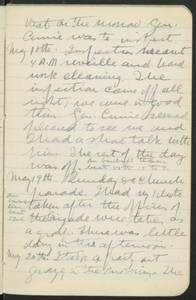 that on the morrow Gen.
Currie was to inspect
May 18th. Inspection meant
4 A.M reveille and hard
work cleaning. The
inspection came off all
right, we were in good
. Gen. Currie seemed
pleased to see me and
I had a short talk with
him. The rest of the day
was off.
May 19th. Sunday & Church
parade. I had my photo
taken after the officers of
the Brigade were taken as
a group. There was little
doing in the afternoon.
May 20th. I took a part out
in the morning. The